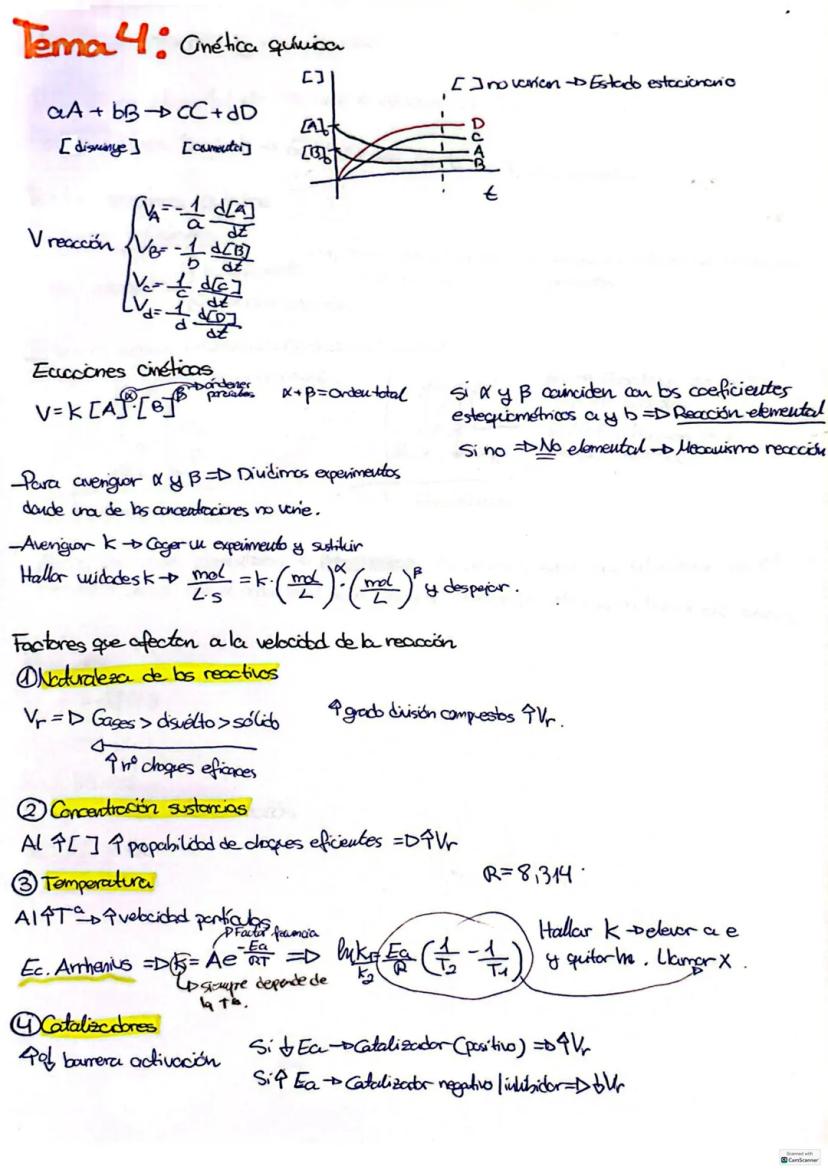 Tema 4: Cinética química
[ ]
[ ] no varían → Estado estacionario
aA + bB → CC + dD
[disminuye] [aumenta]
[A]₀
[B]₀
D
C
A
B
t
V reacción
V_A = -1/a d[A]/dt
V_B = -1/b d[B]/dt
V_C = 1/c d[C]/dt
V_d = 1/d d[D]/dt
Ecuaciones cinéticas
V = K [A]^α · [B]^β → órdenes parciales
α + β = orden total
Si α y β coinciden con los coeficientes
estequiométricos a y b ⇒ Reacción elemental
Si no ⇒ No elemental → Mecanismo reacción
- Para averiguar α y β ⇒ Dividimos experimentos
donde una de las concentraciones no varíe.
- Averiguar K → Coger un experimento y sustituir
Hallar unidades K → mol/L·s = K · (mol/L)^α · (mol/L)^β y despejar.
Factores que afectan a la velocidad de la reacción
① Naturaleza de los reactivos
Vr ⇒ Gases > disuelto > sólido
↑ grado división compuestos ↑ Vr.
←
↑ nº choques eficaces
② Concentración sustancias
Al ↑ [ ] ↑ propabilidad de choques eficientes ⇒ ↑ Vr
R = 8,314
③ Temperatura
Al ↑ Tª → ↑ velocidad partículas
→ Factor frecuencia
Ec. Arrhenius ⇒ K = A e^(-Ea/RT) ⇒ ln K₁/K₂ = Ea/R (1/T₂ - 1/T₁)
→ siempre depende de
la Tª.
Hallar K → elevar a e
y quitar ln. Llamar X.
④ Catalizadores
↑ o ↓ barrera activación
Si ↓ Ea → Catalizador (positivo) ⇒ ↑ Vr
Si ↑ Ea → Catalizador negativo / inhibidor ⇒ ↓ Vr
Scanned with
CamScanner